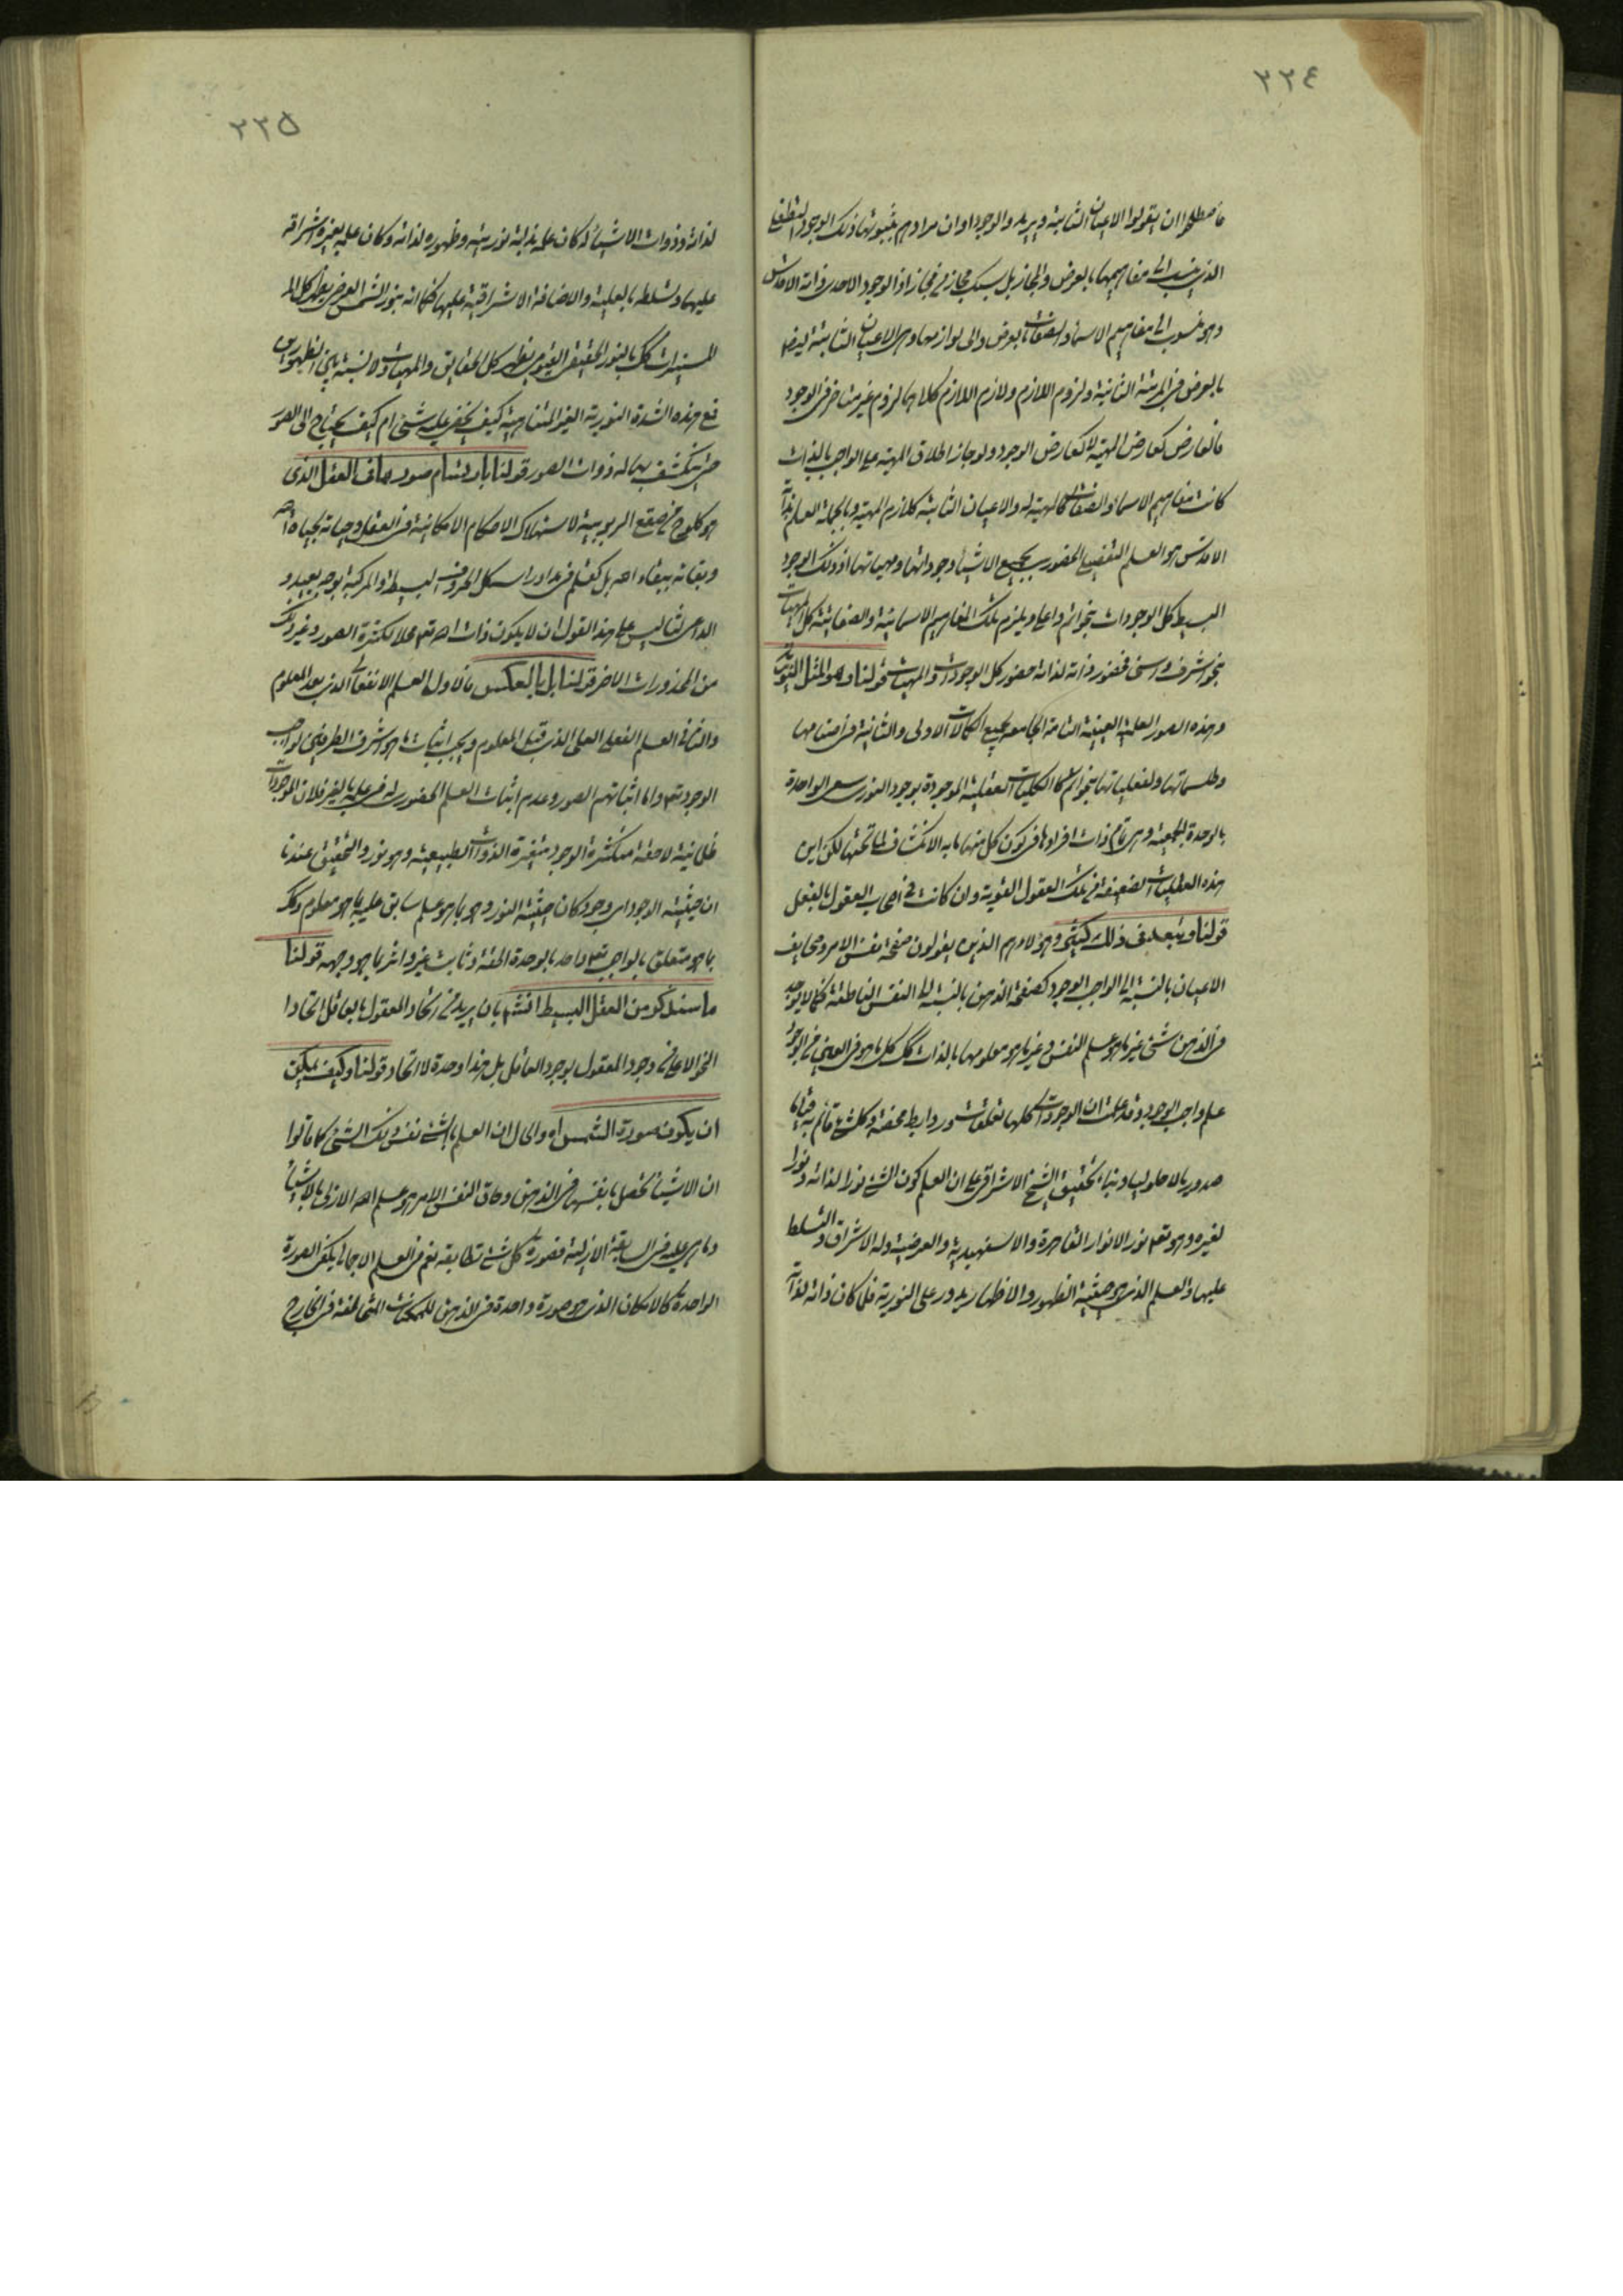 ٢٢٤
فاصطلحوا ان يقولوا الاعيان الثابتة ويريدوا الوجود او ان مرادهم بثبوتها ذلك الوجود التطفلى
الذى ينسب الى مفاهيمها بالعرض والمجاز بل بسبك مجاز فى مجاز اذ الوجود الاحدى ذاته الاقدس
وهو منسوب الى مفاهيم الاسماء والصفات بالعرض والى لوازمها وهى الاعيان الثابتة ايضا
بالعرض فى المرتبة الثانية ولزوم اللازم ولازم اللازم كلاهما لزوم غير متاخر فى الوجود
فالعارض كعارض المهية لا كعارض الوجود ولو جاز اطلاق المهية على الواجب بالذات
كانت مفاهيم الاسماء والصفات كالمهية له والاعيان الثابتة كلازم المهية وبالجملة العلم بذاته
الاقدس هو العلم التفصيلى الحضورى بجميع الاشياء وجوداتها ومهياتها اذ ذلك الوجود
البسيط كل الوجودات بنحو اتم واعلى ويلزم تلك المفاهيم الاسمائية والصفاتية كل المهيات
بنحو اشرف واسنى فحضور ذاته لذاته حضور كل الوجودات والمهيات قولنا وهو المثل النورية
وهذه الصور العلمية العينية التامة الجامعة لجميع الكمالات الاولى والثانية فى اصنامها
وطلسماتها ولفعلياتها بنحو اتم كالكليات العقلية الموجودة بوجود النورى سعى الواحدة
بالوحدة الجمعية وهى تمام ذات افرادها فى كون كل منها ما به الانكشاف لما تحتها لكن اين
هذه العقليات الضعيفة من تلك العقول القوية وان كانت فى اصحاب العقول بالفعل
قولنا وشعلبى ذلك كيثى وهؤلاء هم الذين يقولون صفحة نفس الامر وصحايف
الاعيان بالنسبة الى الواجب الوجود كصفحة الذهن بالنسبة الى النفس الناطقة فكما لا يوجد
فى الذهن شئ غير ما هو علم للنفس وغير ما هو معلومها بالذات كك كل ما هو فى العين فى الوجود
علم واجب الوجود وقد علمت ان الوجودات كلها تعلقات وروابط محضة وكل شئ قائم به قياما
صدوريا لا حلوليا وبناء تحقيق الشيخ الاشراقى على ان العلم كون الشئ نورا لذاته ونورا
لغيره وهو تعم نور الانوار القاهرة والاسفهبدية والعرضية وله الاشراق والتسلط
عليها والعلم الذى هو حيثية الظهور والاظهار يدور على النورية فلما كان ذاته لذاته
٢٢٥
لذاته وذوات الاشياء له كان علمه بذاته نوريته وظهوره لذاته وكان علمه بغيره اشراقه
عليها وتسلطه بالعلية والاضافة الاشراقية عليها فكما انه بنور الشمس العرضى يظهر كل الـ
المستنيرات كك بالنور الحقيقى القيومى يظهر كل الحقايق والمهيات ولا نسبة بين الظهورين
فمع هذه الشدة النورية الغير المتناهية كيف يخفى عليه شئ ام كيف يحتاج الى الصور
حتى ينكشف بها له ذوات الصور قولنا بارتسام صور صاف العقل الذى
هو كلوح من صقع الربوبية لاستهلاك الاحكام الامكانية فى العقل وحياته بحياة الله
وبقائه ببقاء الله بل كقلم فى مداد راسه كل الحروف البسيطة والمركبة بوجه بعيد و
الداعى لثاليس على هذا القول ان لا يكون ذات الله تعم محلا لكثرة الصور وغير ذلك
من المحذورات الاخر قولنا بل بالعكس فالاول العلم الانفعالى الذى بعد المعلوم
والثانى العلم الفعلى العلى الذى قبل المعلوم ويجب اثبات ما هو اشرف الطرفين لواجب
الوجود تعم واما اثباتهم الصور وعدم اثبات العلم الحضورى له فى علمه بالغير فلان الموجودات
ظلمانية لاحقة متكثرة الوجود متغيرة الذوات الطبيعية وهو نور والتحقيق عندنا
ان حيثية الوجود اى وجود كان حيثية النور وهو بما هو علم سابق عليه بما هو معلوم وكك
بما هو متعلق بالواجب تعم واحد بالوحدة الحقة وثابت غير داثر بما هو وجهه قولنا
ما سنذكر من العقل البسيط افتتم بان يريد من اتحاد المعقول بالعاقل اتحادا
النحو الاعلى من وجود المعقول بوجود العاقل بل هذا وحدة لا اتحاد قولنا وكيف يمكن
ان يكون صورة الشمس اه والحال ان العلم بالشئ نفس ذلك الشئ كما قالوا
ان الاشياء تحصل بانفسها فى الذهن وحاق النفس الامر هو علم الله الازلى بالاشياء
وما هى عليه فى السابقة الازلية فصورة كل شئ تطابقه نعم فى العلم الاجمالى يكفى الصورة
الواحدة كالامكان الذى هو صورة واحدة فى الذهن للممكنات المتخالفة فى الخارج